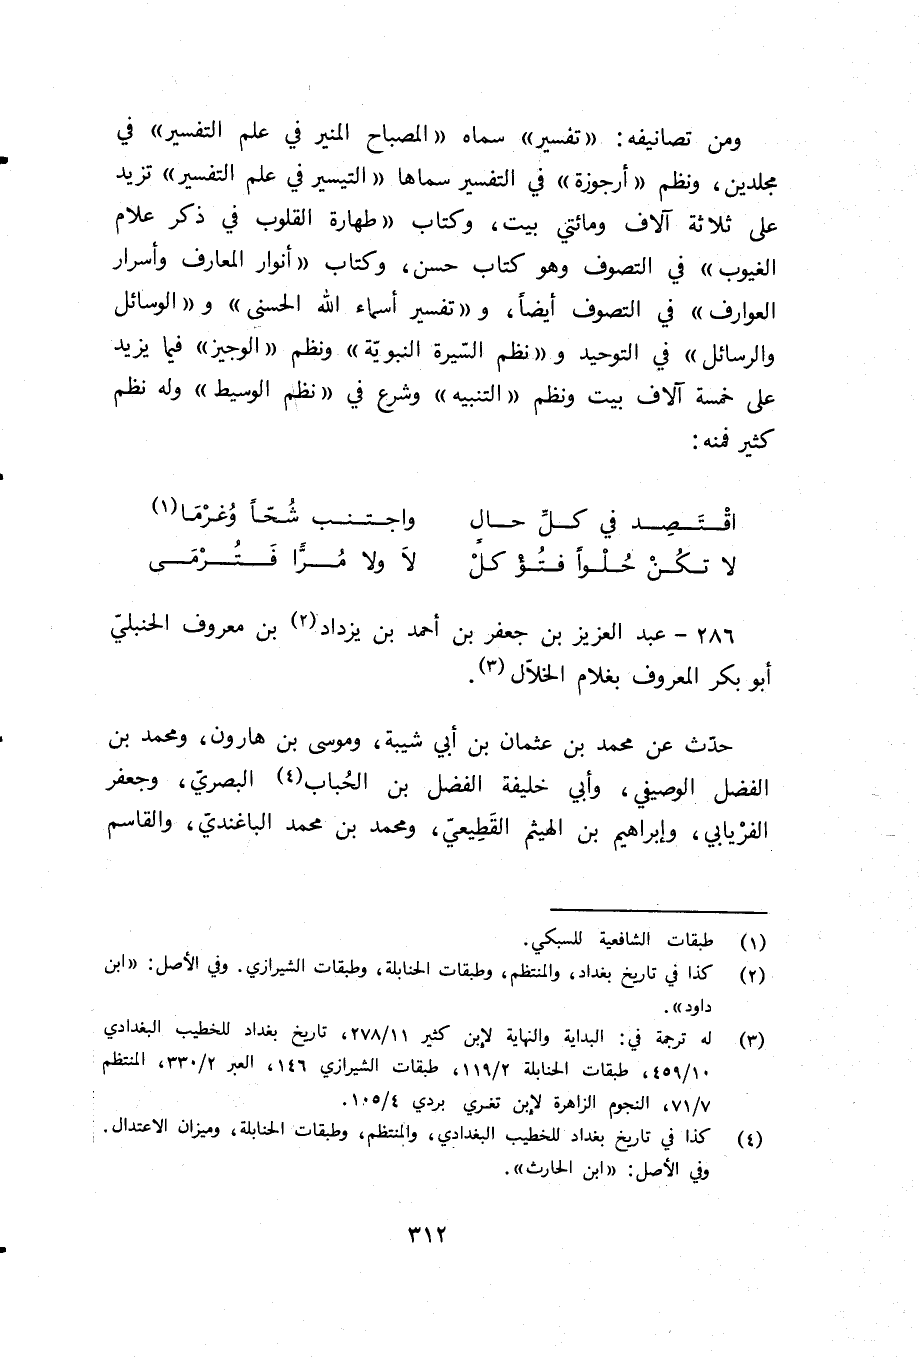 ومن تصانيفه: «تفسير» سماه «المصباح المنير في علم التفسير» في
مجلدين، ونظم «أرجوزة» في التفسير سماها «التيسير في علم التفسير» تزيد
على ثلاثة آلاف ومائتي بيت، وكتاب «طهارة القلوب في ذكر علام
الغيوب» في التصوف وهو كتاب حسن، وكتاب «أنوار المعارف وأسرار
العوارف» في التصوف أيضاً، و«تفسير أسماء الله الحسنى» و«الوسائل
والرسائل» في التوحيد و«نظم السّيرة النبويّة» ونظم «الوجيز» فيما يزيد
على خمسة آلاف بيت ونظم «التنبيه» وشرع في «نظم الوسيط» وله نظم
كثير فمنه:
اقْتَصِد في كلِّ حالٍ واجتنب شُحّاً وَغُرْمَا(١)
لا تكُنْ حُلْواً فتُؤْكلْ لاَ ولا مُرًّا فَتُرْمَى
٢٨٦ - عبد العزيز بن جعفر بن أحمد بن يزداد(٢) بن معروف الحنبليّ
أبو بكر المعروف بغلام الخلاّل(٣).
حدّث عن محمد بن عثمان بن أبي شيبة، وموسى بن هارون، ومحمد بن
الفضل الوصيفي، وأبي خليفة الفضل بن الحُباب(٤) البصريّ، وجعفر
الفرْيابي، وإبراهيم بن الهيثم القَطِيعيّ، ومحمد بن محمد الباغنديّ، والقاسم
(١) طبقات الشافعية للسبكي.
(٢) كذا في تاريخ بغداد، والمنتظم، وطبقات الحنابلة، وطبقات الشيرازي. وفي الأصل: «ابن
داود».
(٣) له ترجمة في: البداية والنهاية لإبن كثير ٢٧٨/١١، تاريخ بغداد للخطيب البغدادي
٤٥٩/١٠، طبقات الحنابلة ١١٩/٢، طبقات الشيرازي ١٤٦، العبر ٣٣٠/٢، المنتظم
٧١/٧، النجوم الزاهرة لإبن تغري بردي ١٠٥/٤.
(٤) كذا في تاريخ بغداد للخطيب البغدادي، والمنتظم، وطبقات الحنابلة، وميزان الاعتدال.
وفي الأصل: «ابن الحارث».
٣١٢